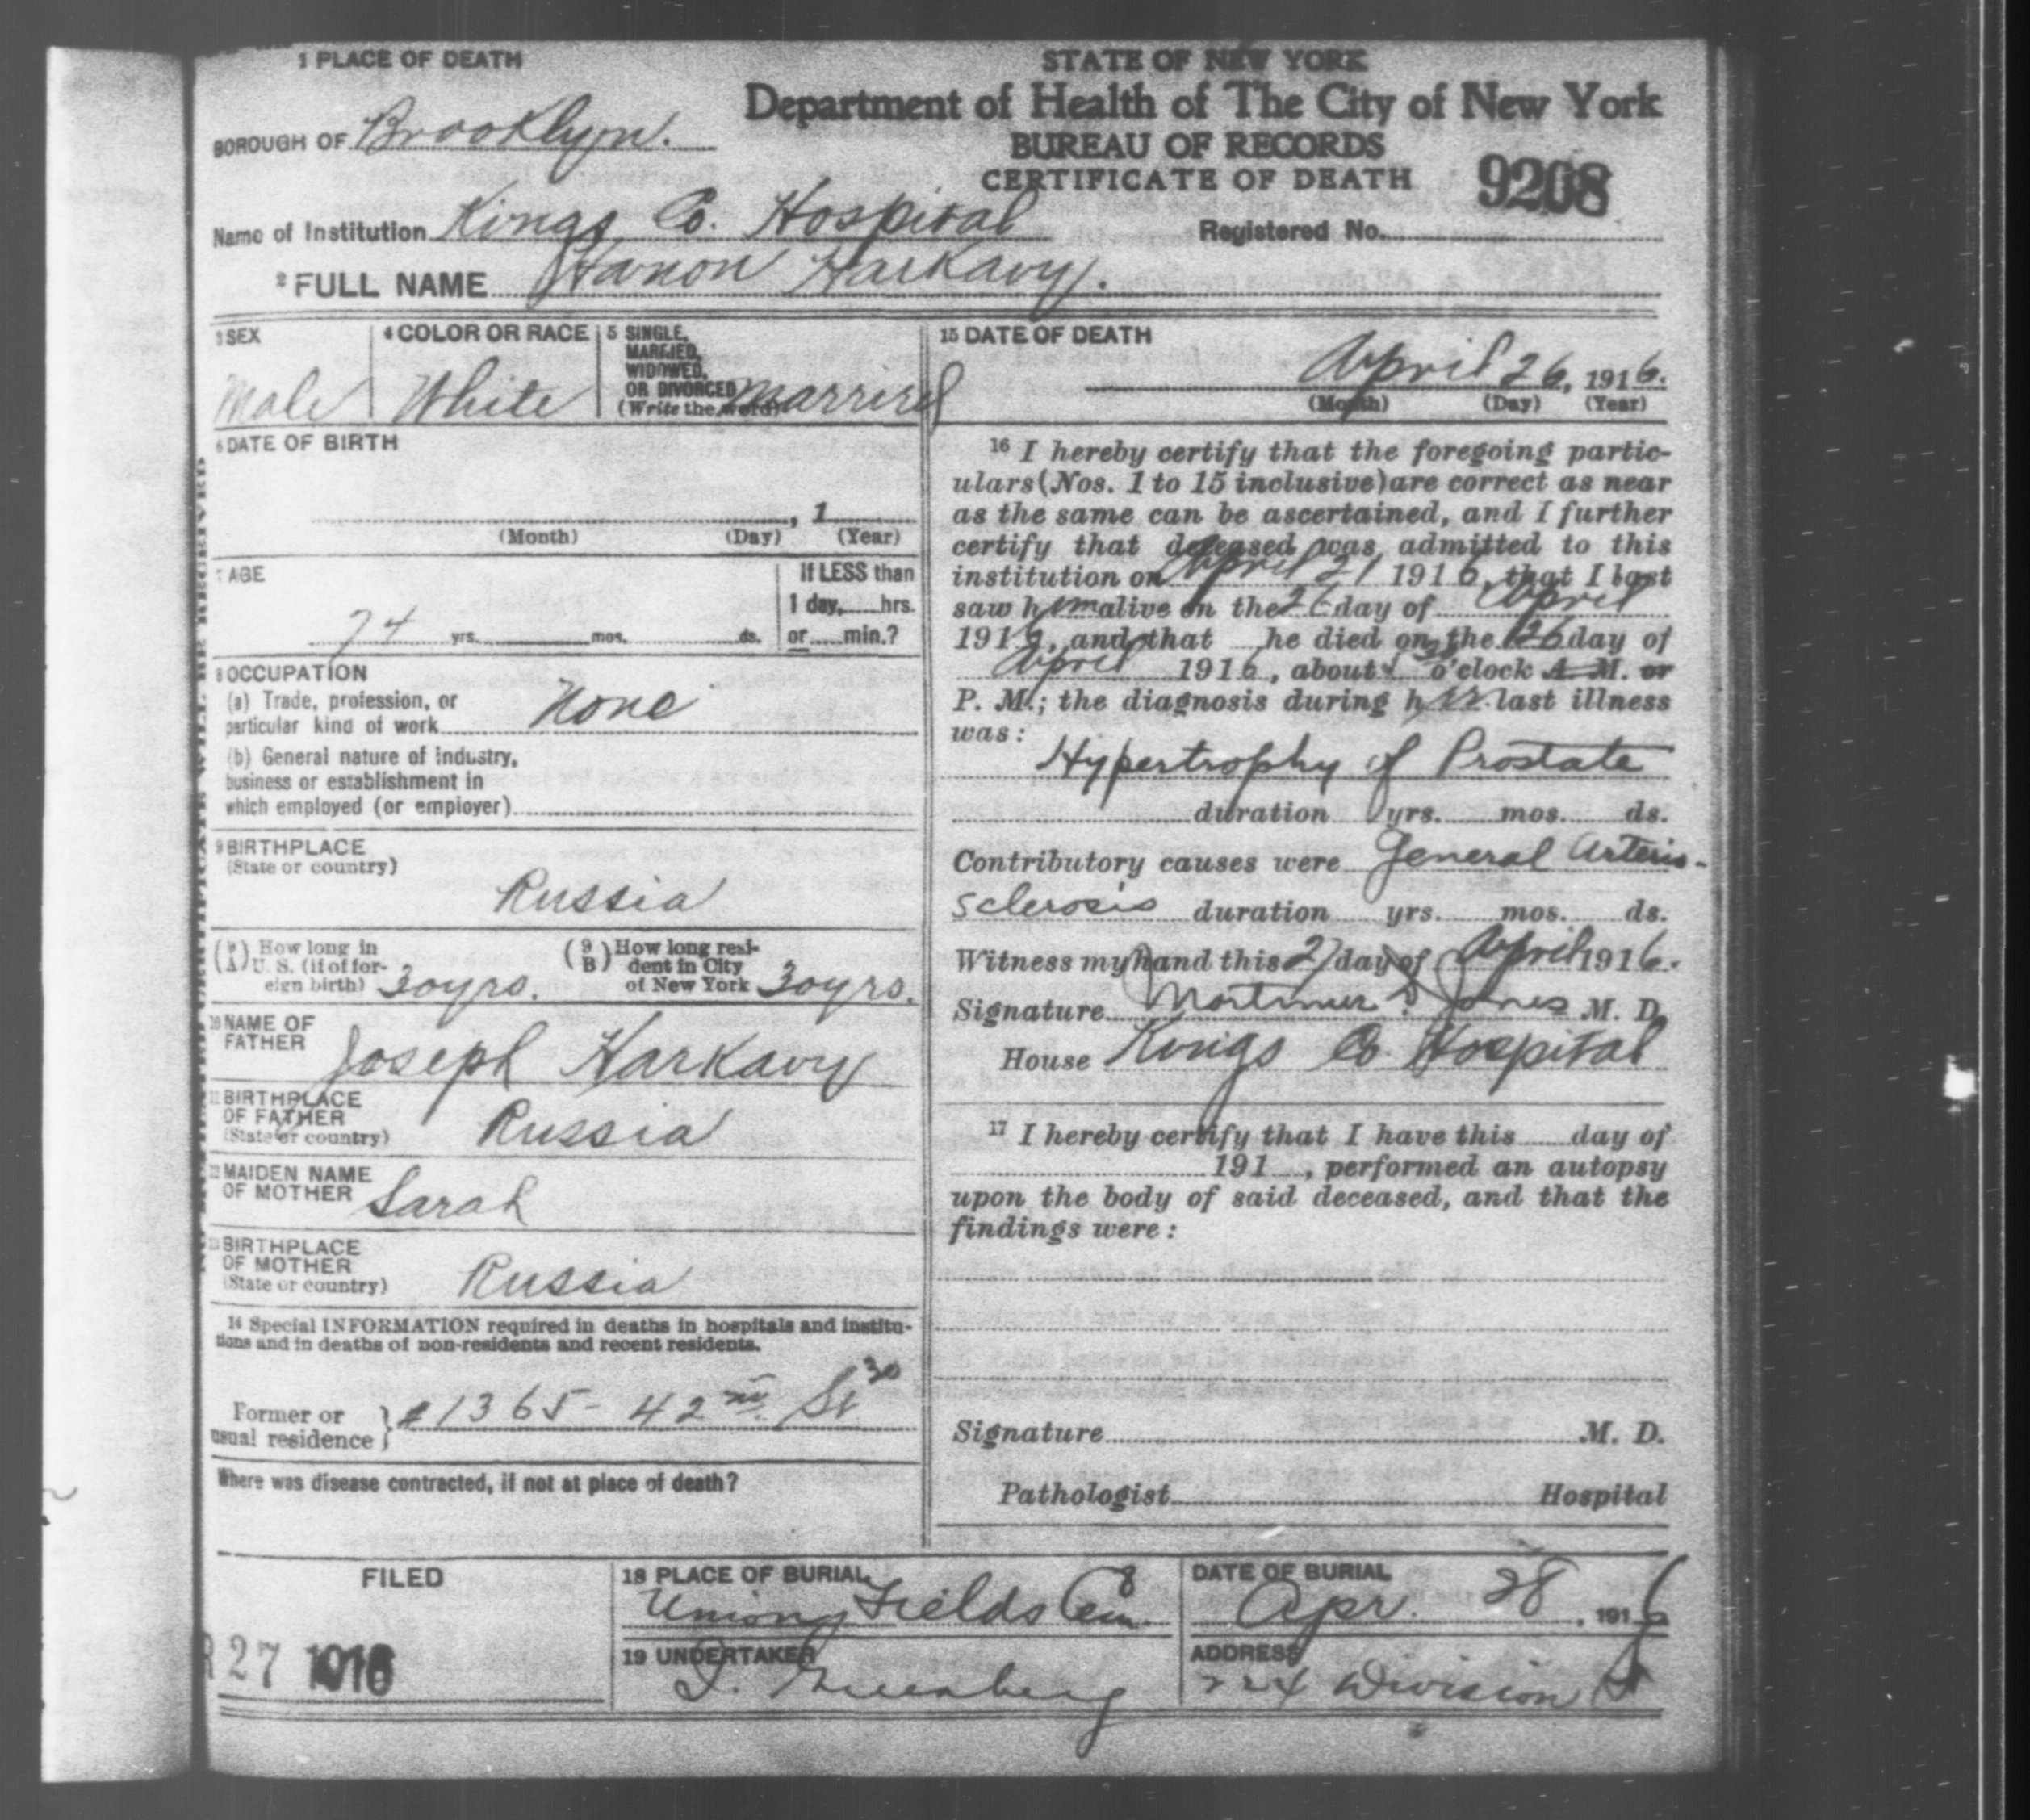 1 PLACE OF DEATH
STATE OF NEW YORK
Department of Health of The City of New York
BUREAU OF RECORDS
CERTIFICATE OF DEATH
BOROUGH OF Brooklyn.
9208
Name of Institution Kings Co. Hospital
Registered No.
2 FULL NAME Hanon Harkavy.
3 SEX
Male
4 COLOR OR RACE
White
5 SINGLE,
MARRIED,
WIDOWED,
OR DIVORCED
(Write the word) Married
6 DATE OF BIRTH
, 1
(Month) (Day) (Year)
7 AGE
74 yrs. mos. ds.
If LESS than
1 day, hrs.
or min.?
8 OCCUPATION
(a) Trade, profession, or
particular kind of work None
(b) General nature of industry,
business or establishment in
which employed (or employer)
9 BIRTHPLACE
(State or country)
Russia
(9 A) How long in
U. S. (if of for-
eign birth) 30yrs.
(9 B) How long resi-
dent in City
of New York 30yrs.
10 NAME OF
FATHER
Joseph Harkavy
11 BIRTHPLACE
OF FATHER
(State or country) Russia
12 MAIDEN NAME
OF MOTHER Sarah
13 BIRTHPLACE
OF MOTHER
(State or country) Russia
14 Special INFORMATION required in deaths in hospitals and institu-
tions and in deaths of non-residents and recent residents.
Former or
usual residence } #1365- 42nd St
Where was disease contracted, if not at place of death?
15 DATE OF DEATH
April 26, 1916.
(Month) (Day) (Year)
16 I hereby certify that the foregoing partic-
ulars (Nos. 1 to 15 inclusive) are correct as near
as the same can be ascertained, and I further
certify that deceased was admitted to this
institution on April 21 1916, that I last
saw him alive on the 26 day of April
1916, and that he died on the 26 day of
April 1916, about o'clock A. M. or
P. M.; the diagnosis during his last illness
was:
Hypertrophy of Prostate
duration yrs. mos. ds.
Contributory causes were General Arterio-
sclerosis duration yrs. mos. ds.
Witness my hand this 27 day of April 1916.
Signature Mortimer D. Jones M. D.
House Kings Co. Hospital
17 I hereby certify that I have this day of
191 , performed an autopsy
upon the body of said deceased, and that the
findings were:
Signature M. D.
Pathologist Hospital
FILED
27 1916
18 PLACE OF BURIAL
Union Fields Cem.
DATE OF BURIAL
Apr. 28, 1916
19 UNDERTAKER
Greenberg
ADDRESS
224 Division St